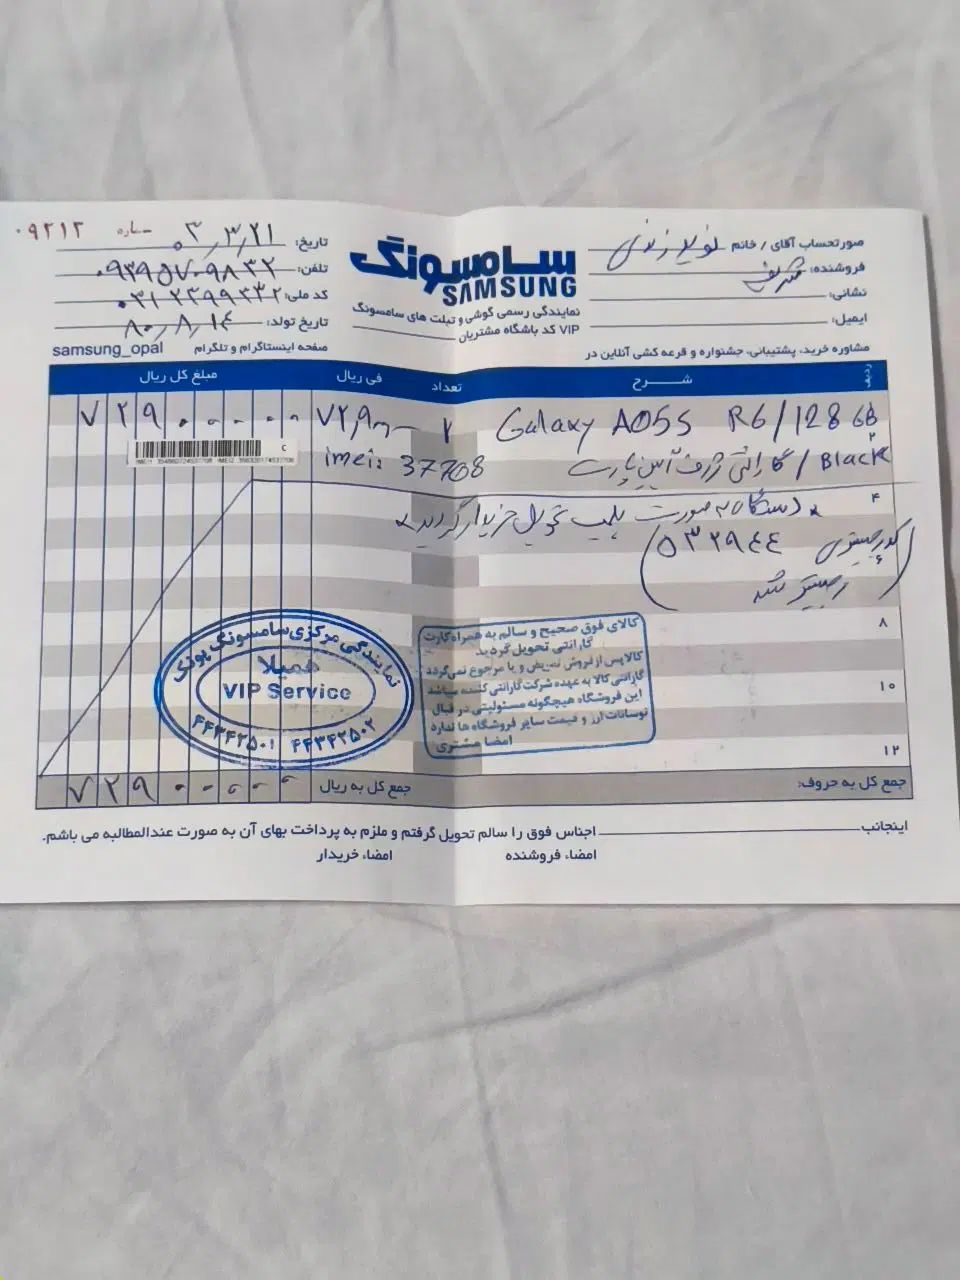 صورتحساب آقای / خانم نوید زندی
فروشنده: شریف
نشانی:
ایمیل:
سامسونگ
SAMSUNG
نمایندگی رسمی گوشی و تبلت های سامسونگ
VIP کد باشگاه مشتریان
شماره ۰۹۲۱۲
تاریخ: ۰۳/۳/۲۱
تلفن: ۰۹۳۹۵۷۰۹۸۳۲
کد ملی:
تاریخ تولد: ۸۰/۸/۱۴
مشاوره خرید، پشتیبانی، جشنواره و قرعه کشی آنلاین در صفحه اینستاگرام و تلگرام samsung_opal
ردیف شرح تعداد فی ریال مبلغ کل ریال
Galaxy A05s R6/128 GB ۱ ۷۲,۹۰۰,۰۰۰ ۷۲۹۰۰۰۰۰
۲ Black / گارانتی ژرف آئین پارت imei: 37708
۴ * دستگاه به صورت پلمپ تحویل خریدار گردید *
۶ کد رجیستری ۵۳۲۹۴۴
رجیستر شد
۸
۱۰
۱۲
کالای فوق صحیح و سالم به همراه کارت
گارانتی تحویل گردید
کالا پس از فروش تعویض و یا مرجوع نمی گردد
گارانتی کالا به عهده شرکت گارانتی کننده میباشد
این فروشگاه هیچگونه مسئولیتی در قبال
نوسانات ارز و قیمت سایر فروشگاه ها ندارد
امضا مشتری
نمایندگی مرکزی سامسونگ پونک
همیلا
VIP Service
۴۴۳۴۲۵۰۱ ۴۴۳۴۲۵۰۲
جمع کل به حروف: جمع کل به ریال ۷۲۹۰۰۰۰۰
اینجانب اجناس فوق را سالم تحویل گرفتم و ملزم به پرداخت بهای آن به صورت عندالمطالبه می باشم.
امضاء فروشنده امضاء خریدار